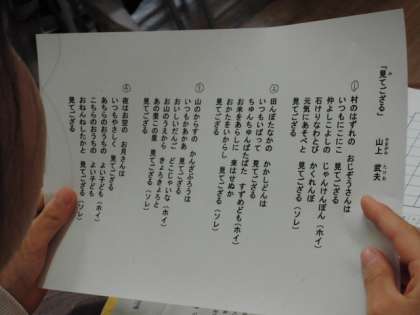 「見てござる」
山上 武夫
① 村のはずれの おじぞうさんは
いつもにこにこ 見てござる
仲よしこよしの じゃんけんぽん(ホイ)
石けりなわとび かくれんぼ
元気にあそべと 見てござる(ソレ)
② 田んぼたなかの かかしどんは
いつもいばって 見てござる
ちゅんちゅんばたばた すずめども(ホイ)
お米をあらしに 来はせぬか
おかたをいからし 見てござる(ソレ)
③ 山のからすの かんざぶろうは
いつもかあかあ 見てござる
おいしいだんご どこじゃいな(ホイ)
お山のうえから きょろきょろと
あの里この里 見てござる(ソレ)
④ 夜はお空の お月さんは
いつもやさしく 見てござる
あちらのおうちの よい子ども(ホイ)
こちらのおうちの よい子ども
おねんねしたかと 見てござる(ソレ)